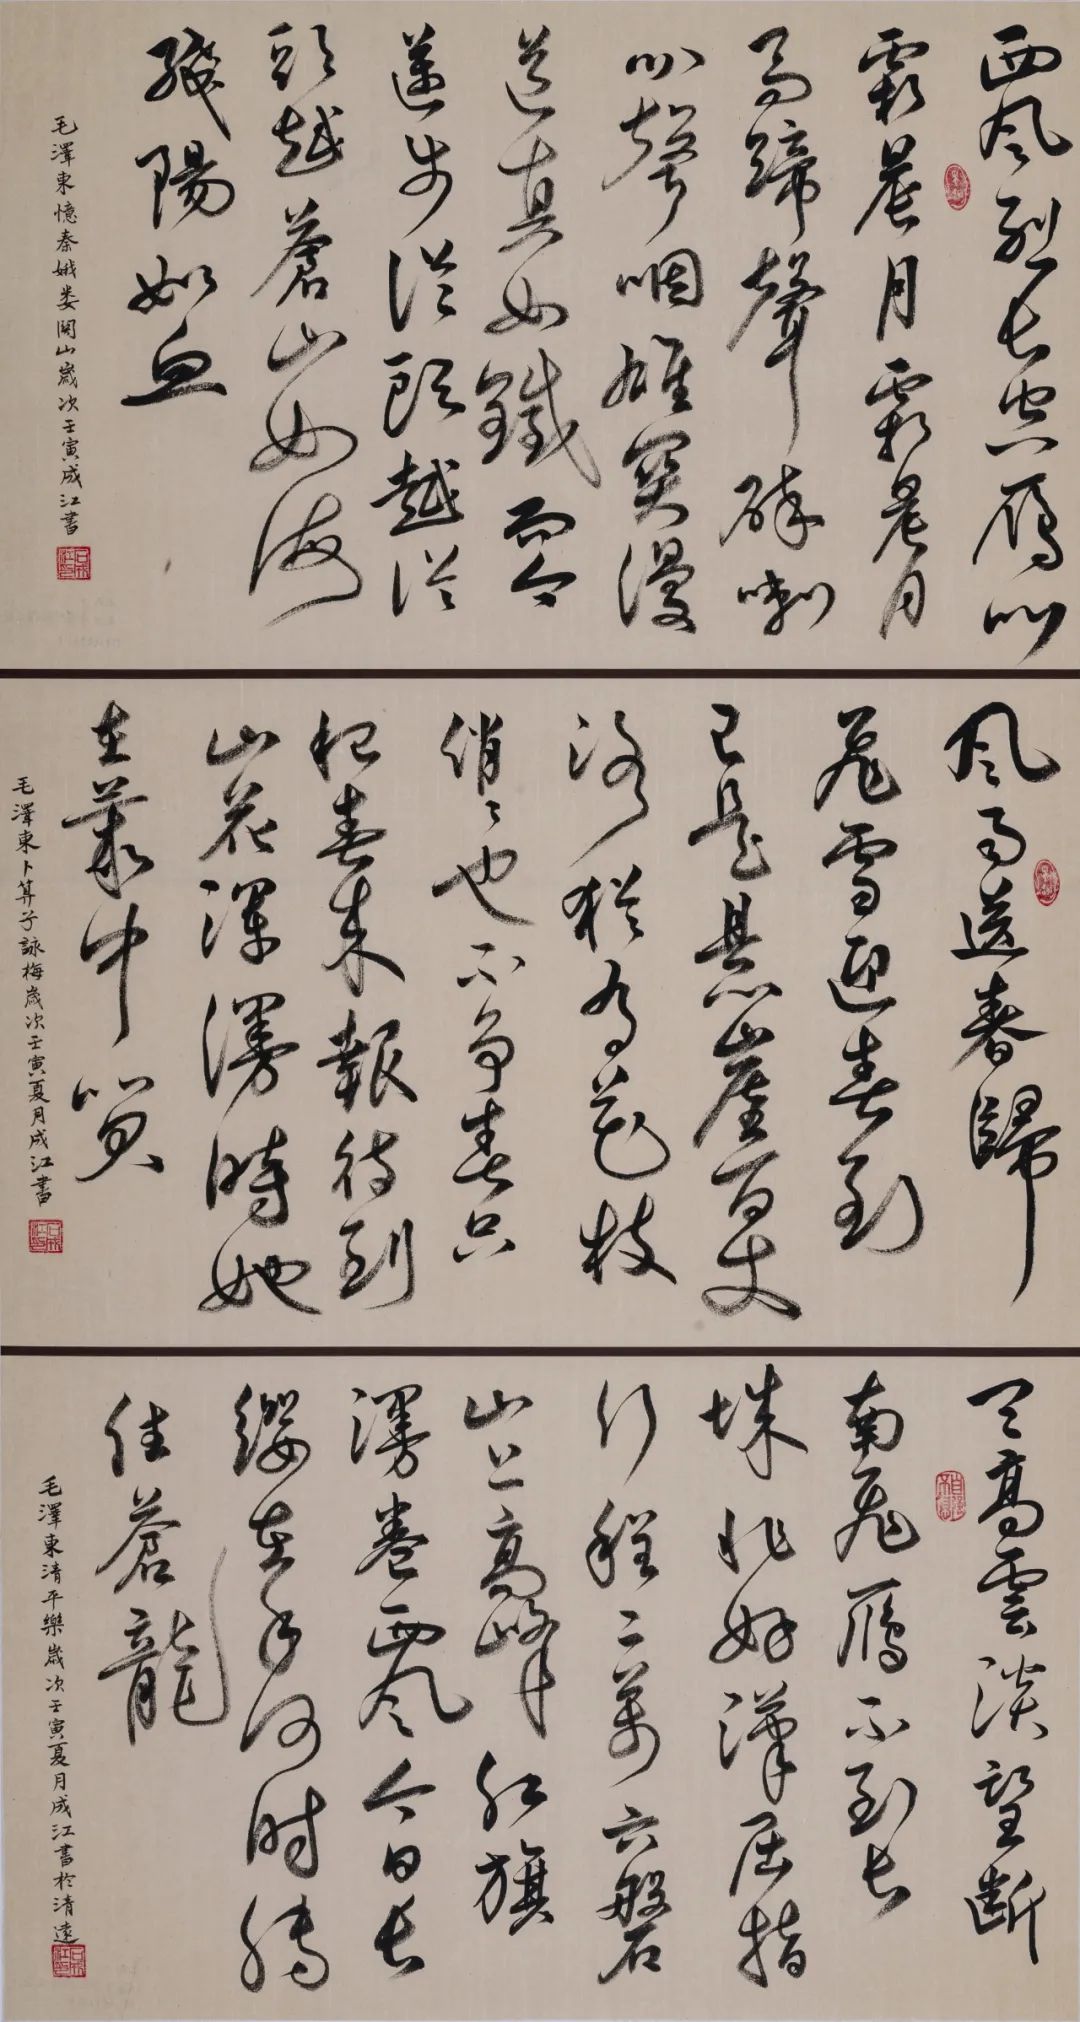 西风烈長空雁叫
霜晨月霜晨月
马蹄聲碎喇
叭聲咽雄関漫
道真如鐵而今
邁步從頭越從
頭越蒼山如海
殘陽如血
毛澤東憶秦娥娄関山歲次壬寅成江書
风雨送春歸
飛雪迎春到
已是悬崖百丈
冰犹有花枝
俏〻也不争春只
把春来報待到
山花爛漫時她
在叢中笑
毛澤東卜算子詠梅歲次壬寅夏月成江書
天高雲淡望斷
南飛雁不到長
城非好漢屈指
行程二萬六盤
山上高峰红旗
漫卷西风今日長
缨在手何时缚
住蒼龍
毛澤東清平樂歲次壬寅夏月成江書於清遠